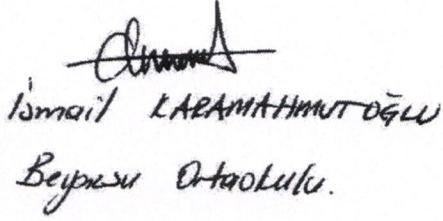 İsmail KARAMAHMUTOĞLU
Beypınarı Ortaokulu.